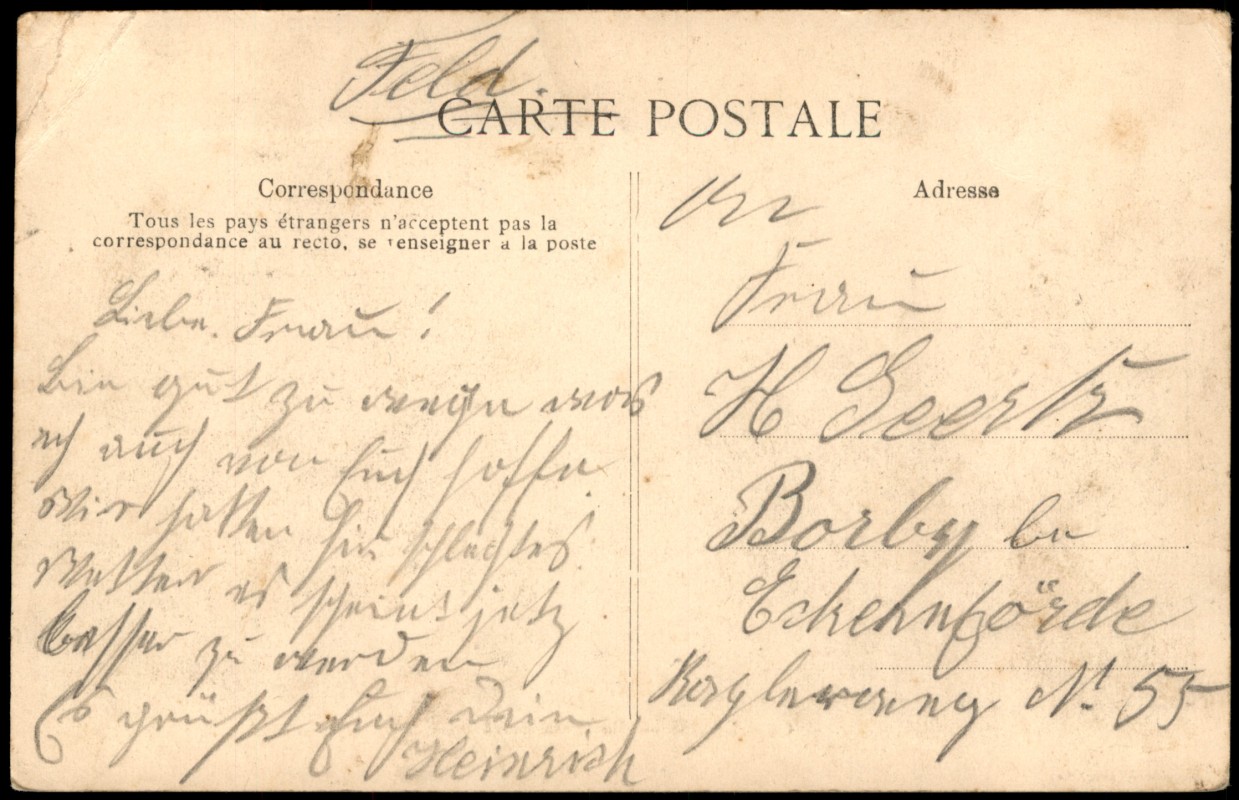 Feld.
CARTE POSTALE
Correspondance
Tous les pays étrangers n'acceptent pas la
correspondance au recto, se renseigner a la poste
Liebe Frau!
Bin gut zu wege was
ich auch von Euch hoffe.
Wir hatten hir schlechtes
Wetter es scheint jetz
besser zu werden
Es grüßt Euch Dein
Heinrich
Adresse
An
Frau
H Geertz
Borby bei
Eckernförde
N! 55